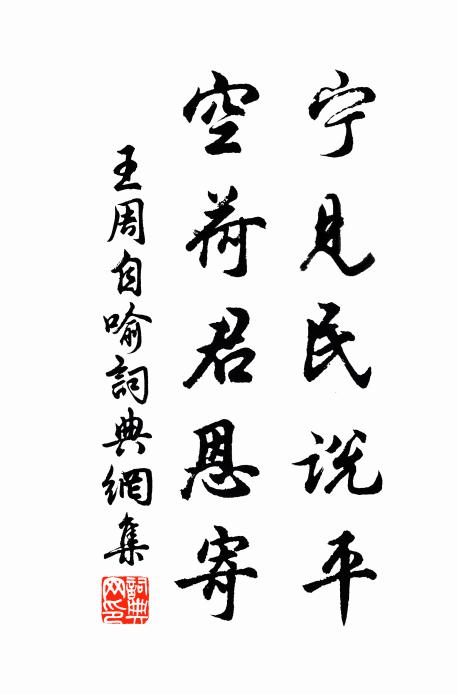 宁见民说平
空荷君恩寄
王周自喻詞典網集
詞典网印